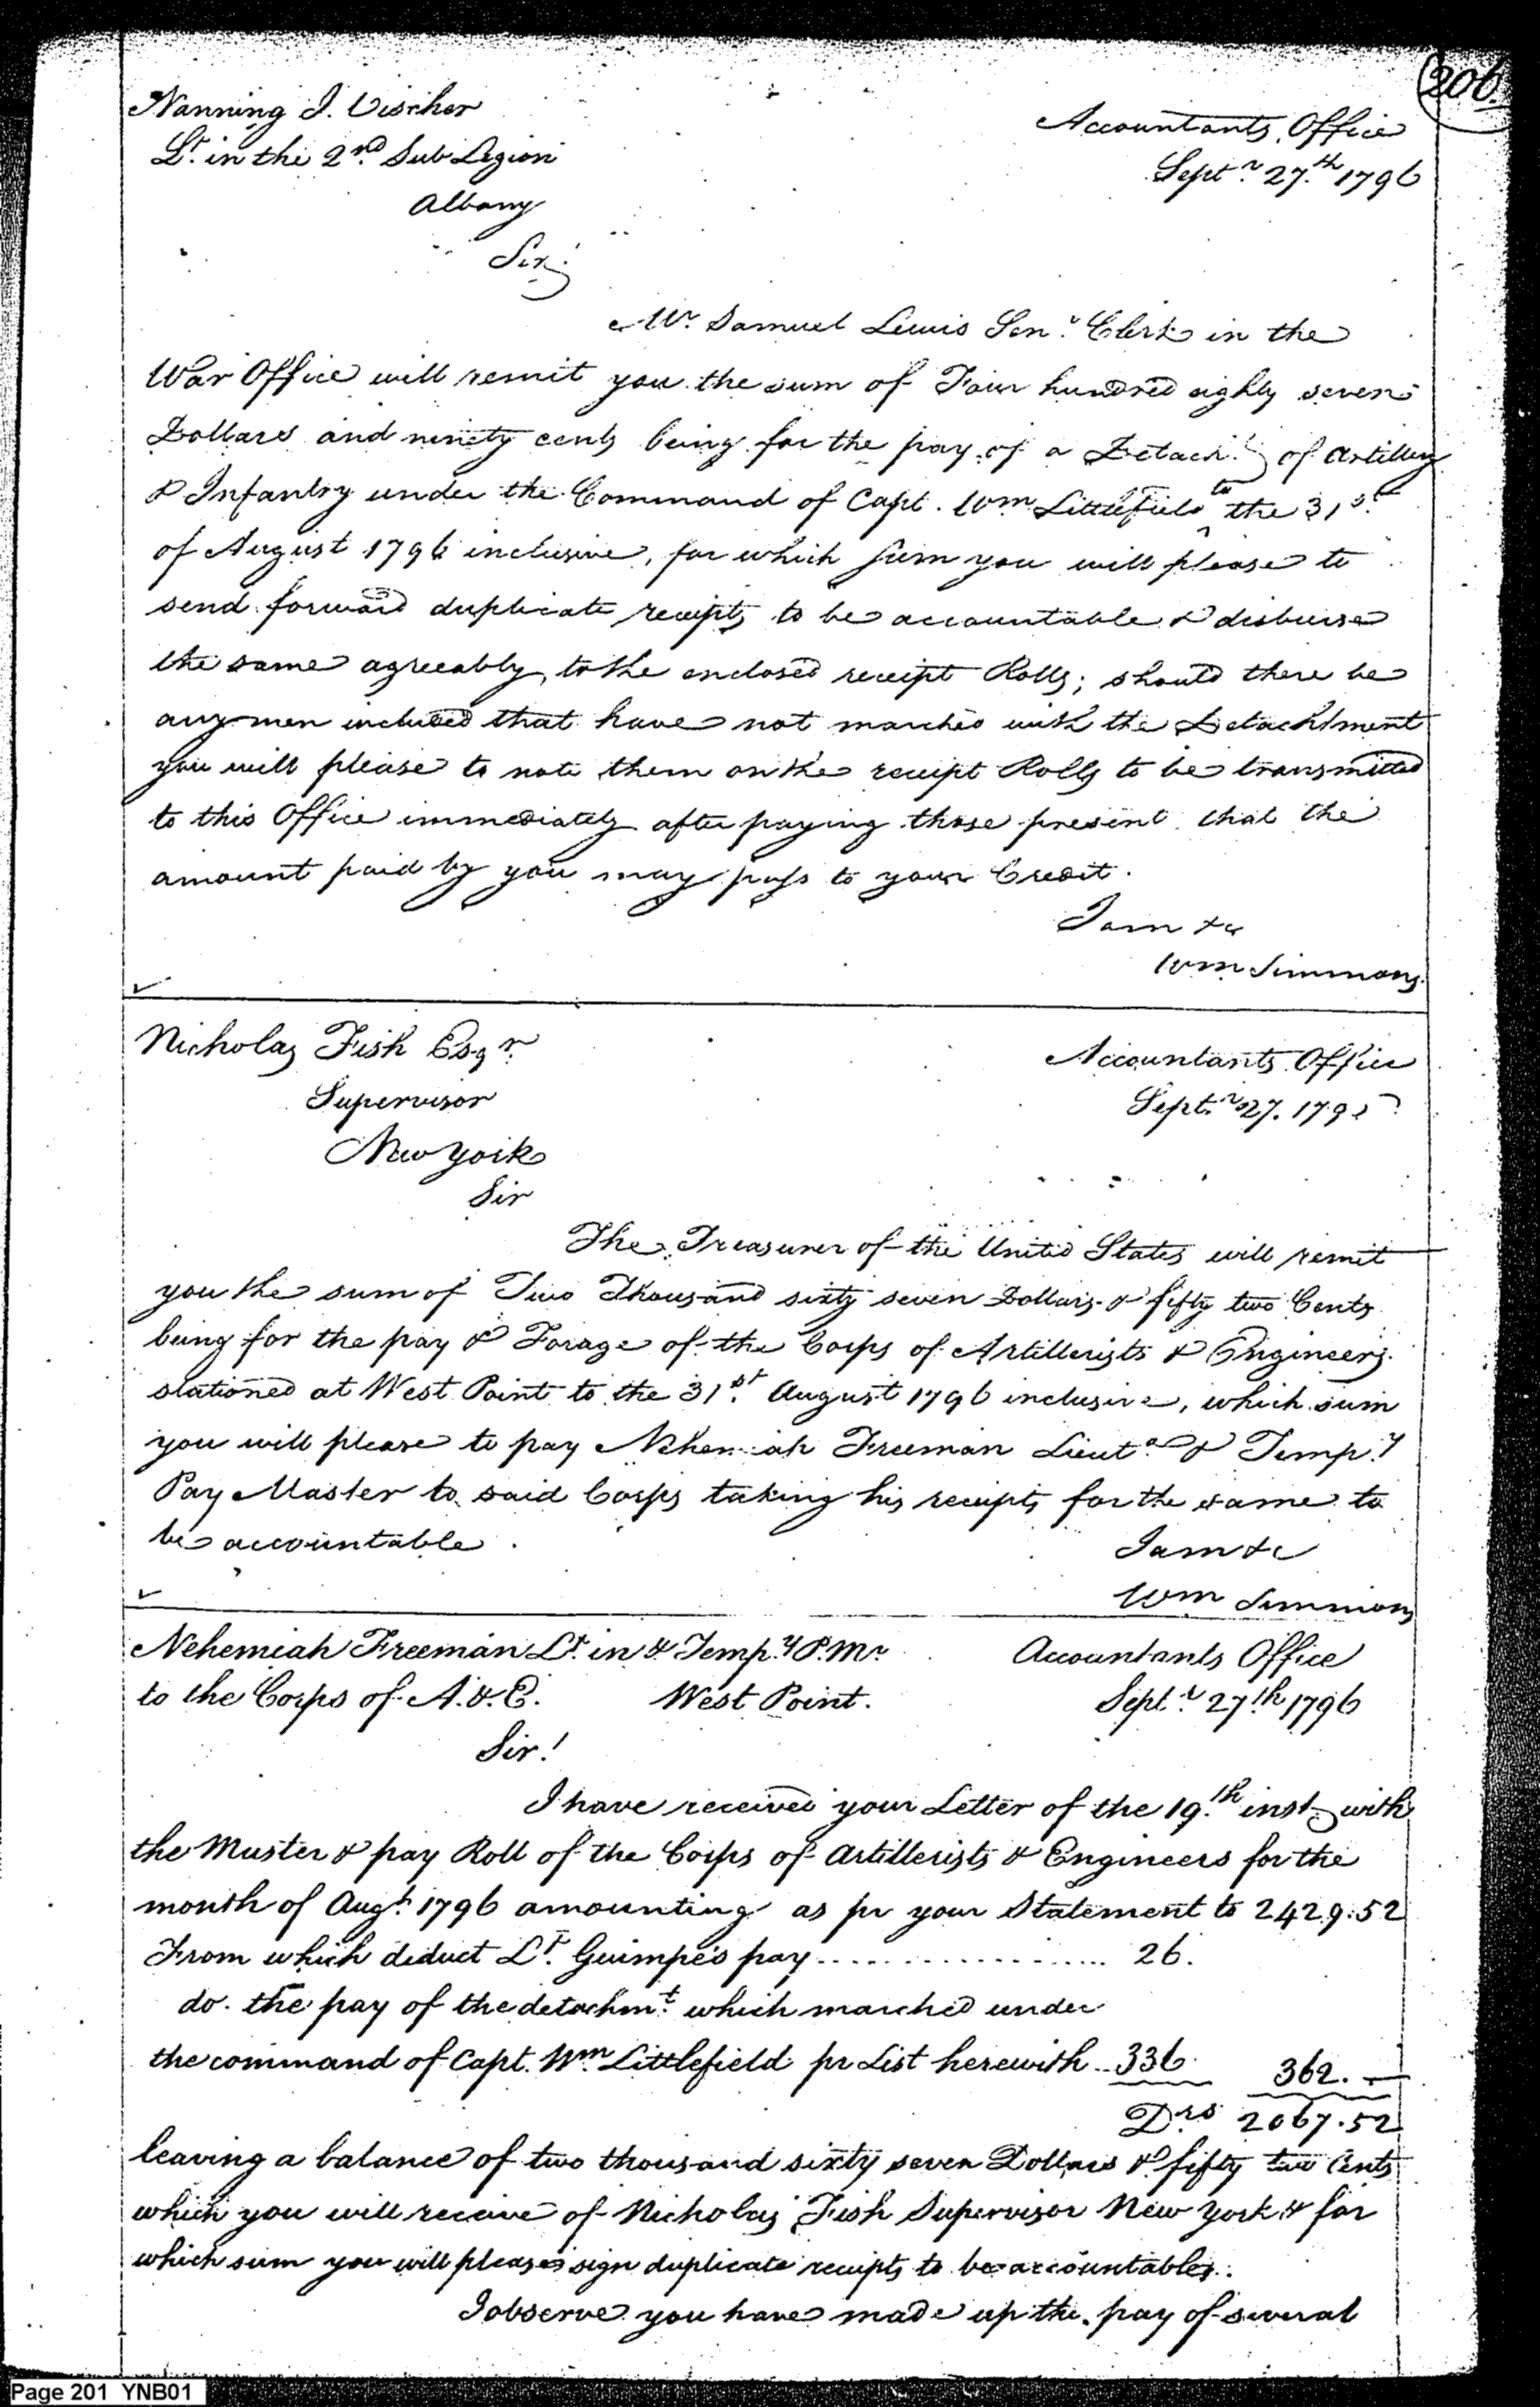 206.
Nanning J. Vischer
Lt. in the 2nd Sub Legion
Albany
Accountants Office
Septr. 27th. 1796
Sir;
Mr. Samuel Lewis Senr. Clerk in the
War Office will remit you the sum of Four hundred eighty seven
Dollars and ninety cents being for the pay of a Detacht. of Artillery
& Infantry under the Command of Capt. Wm Littlefield to the 31st.
of August 1796 inclusive, for which sum you will please to
send forward duplicate receipts to be accountable & disburse
the same agreeably to the enclosed receipt Rolls; should there be
any men included that have not marched with the Detachtment
you will please to note them on the receipt Rolls to be transmitted
to this Office immediately after paying those present that the
amount paid by you may pass to your Credit.
I am &c
Wm Simmons.
Nicholas Fish Esqr.
Supervisor
New York
Accountants Office
Septr. 27. 1796
Sir
The Treasurer of the United States will remit
you the sum of Two Thousand sixty seven Dollars & fifty two Cents
being for the pay & Forage of the Corps of Artillerists & Engineers
stationed at West Point to the 31st. August 1796 inclusive, which sum
you will please to pay Nehemiah Freeman Lieut. & Tempy.
Pay Master to said Corps taking his receipts for the same to
be accountable.
I am &c
Wm Simmons
Nehemiah Freeman Lt. in & Tempy. P. Mr.
to the Corps of A. & E. West Point.
Accountants Office
Septr. 27th 1796
Sir!
I have received your Letter of the 19th. inst. with
the Muster & pay Roll of the Corps of Artillerists & Engineers for the
month of Augt. 1796 amounting as pr your Statement to 2429.52
From which deduct Lt. Guimpe's pay .................. 26.
do. the pay of the detachmt. which marched under
the command of Capt. Wm. Littlefield pr List herewith .. 336. 362. —
Drs. 2067.52
leaving a balance of two thousand sixty seven Dollars & fifty two Cents
which you will receive of Nicholas Fish Supervisor New York & for
which sum you will please sign duplicate receipts to be accountable.
I observe you have made up the pay of several
Page 201 YNB01